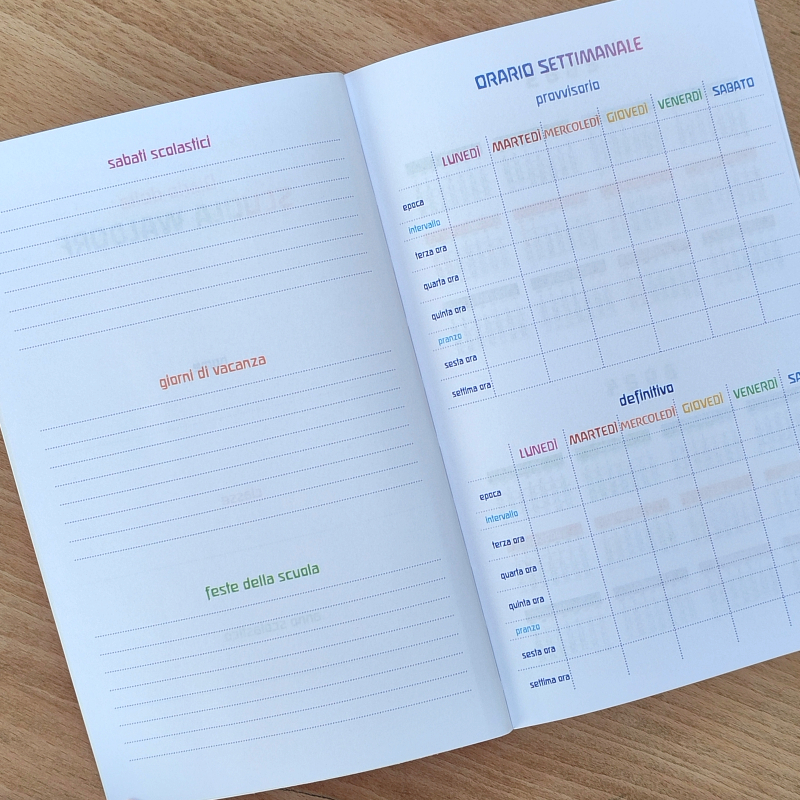 sabati scolastici
giorni di vacanza
feste della scuola
ORARIO SETTIMANALE
provvisorio
LUNEDÌ MARTEDÌ MERCOLEDÌ GIOVEDÌ VENERDÌ SABATO
epoca
intervallo
terza ora
quarta ora
quinta ora
pranzo
sesta ora
settima ora
definitivo
LUNEDÌ MARTEDÌ MERCOLEDÌ GIOVEDÌ VENERDÌ SA
epoca
intervallo
terza ora
quarta ora
quinta ora
pranzo
sesta ora
settima ora